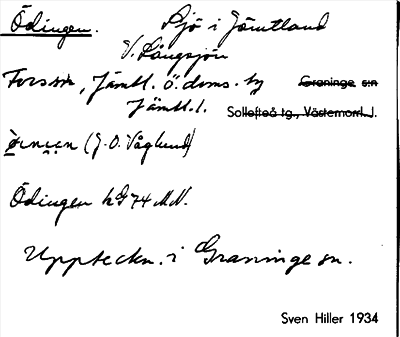 Ödingen. Sjö i Jämtland
V. Långsjön
Fors sn, Jämtl. ö. doms. tg Graninge s:n
Jämtl. l. Sollefteå tg., Västernorrl. l.
(J. O. Våglund)
Ödingen hG74 M.N.
Uppteckn. i Graninge sn.
Sven Hiller 1934